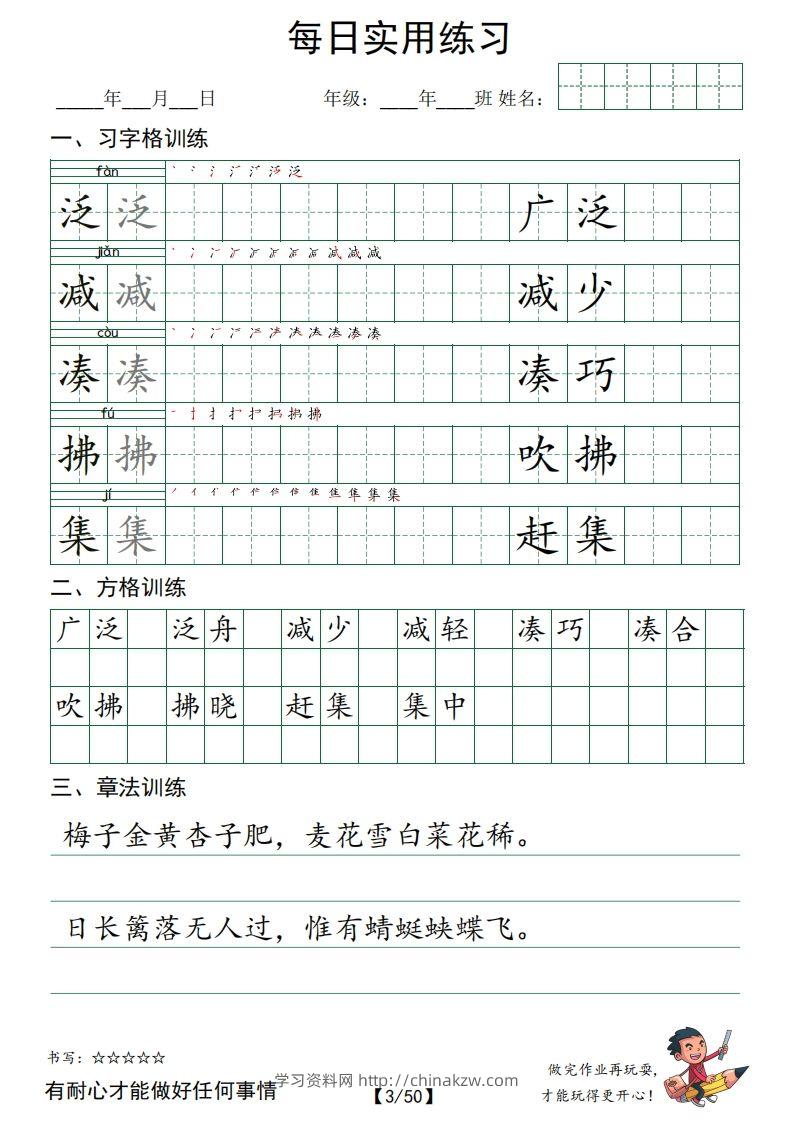 每日实用练习
_____年___月___日 年级：____年____班 姓名：
一、习字格训练
fàn
泛 泛 广 泛
jiǎn
减 减 减 少
còu
凑 凑 凑 巧
fú
拂 拂 吹 拂
jí
集 集 赶 集
二、方格训练
广泛 泛舟 减少 减轻 凑巧 凑合
吹拂 拂晓 赶集 集中
三、章法训练
梅子金黄杏子肥，麦花雪白菜花稀。
日长篱落无人过，惟有蜻蜓蛱蝶飞。
书写：☆☆☆☆☆
有耐心才能做好任何事情
学习资料网 http://chinakzw.com
【3/50】
做完作业再玩耍，
才能玩得更开心！